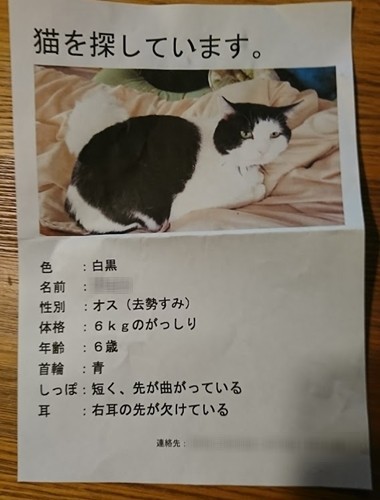 猫を探しています。
色　：白黒
名前　：
性別　：オス（去勢すみ）
体格　：６ｋｇのがっしり
年齢　：６歳
首輪　：青
しっぽ：短く、先が曲がっている
耳　：右耳の先が欠けている
連絡先：